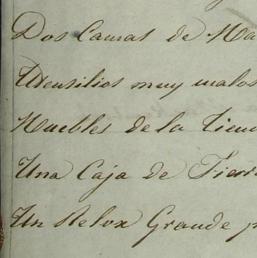 Dos Camas de Ma
Utensilios muy malos
Muebles de la Tien
Una Caja de Fierr
Un Relox Grande p